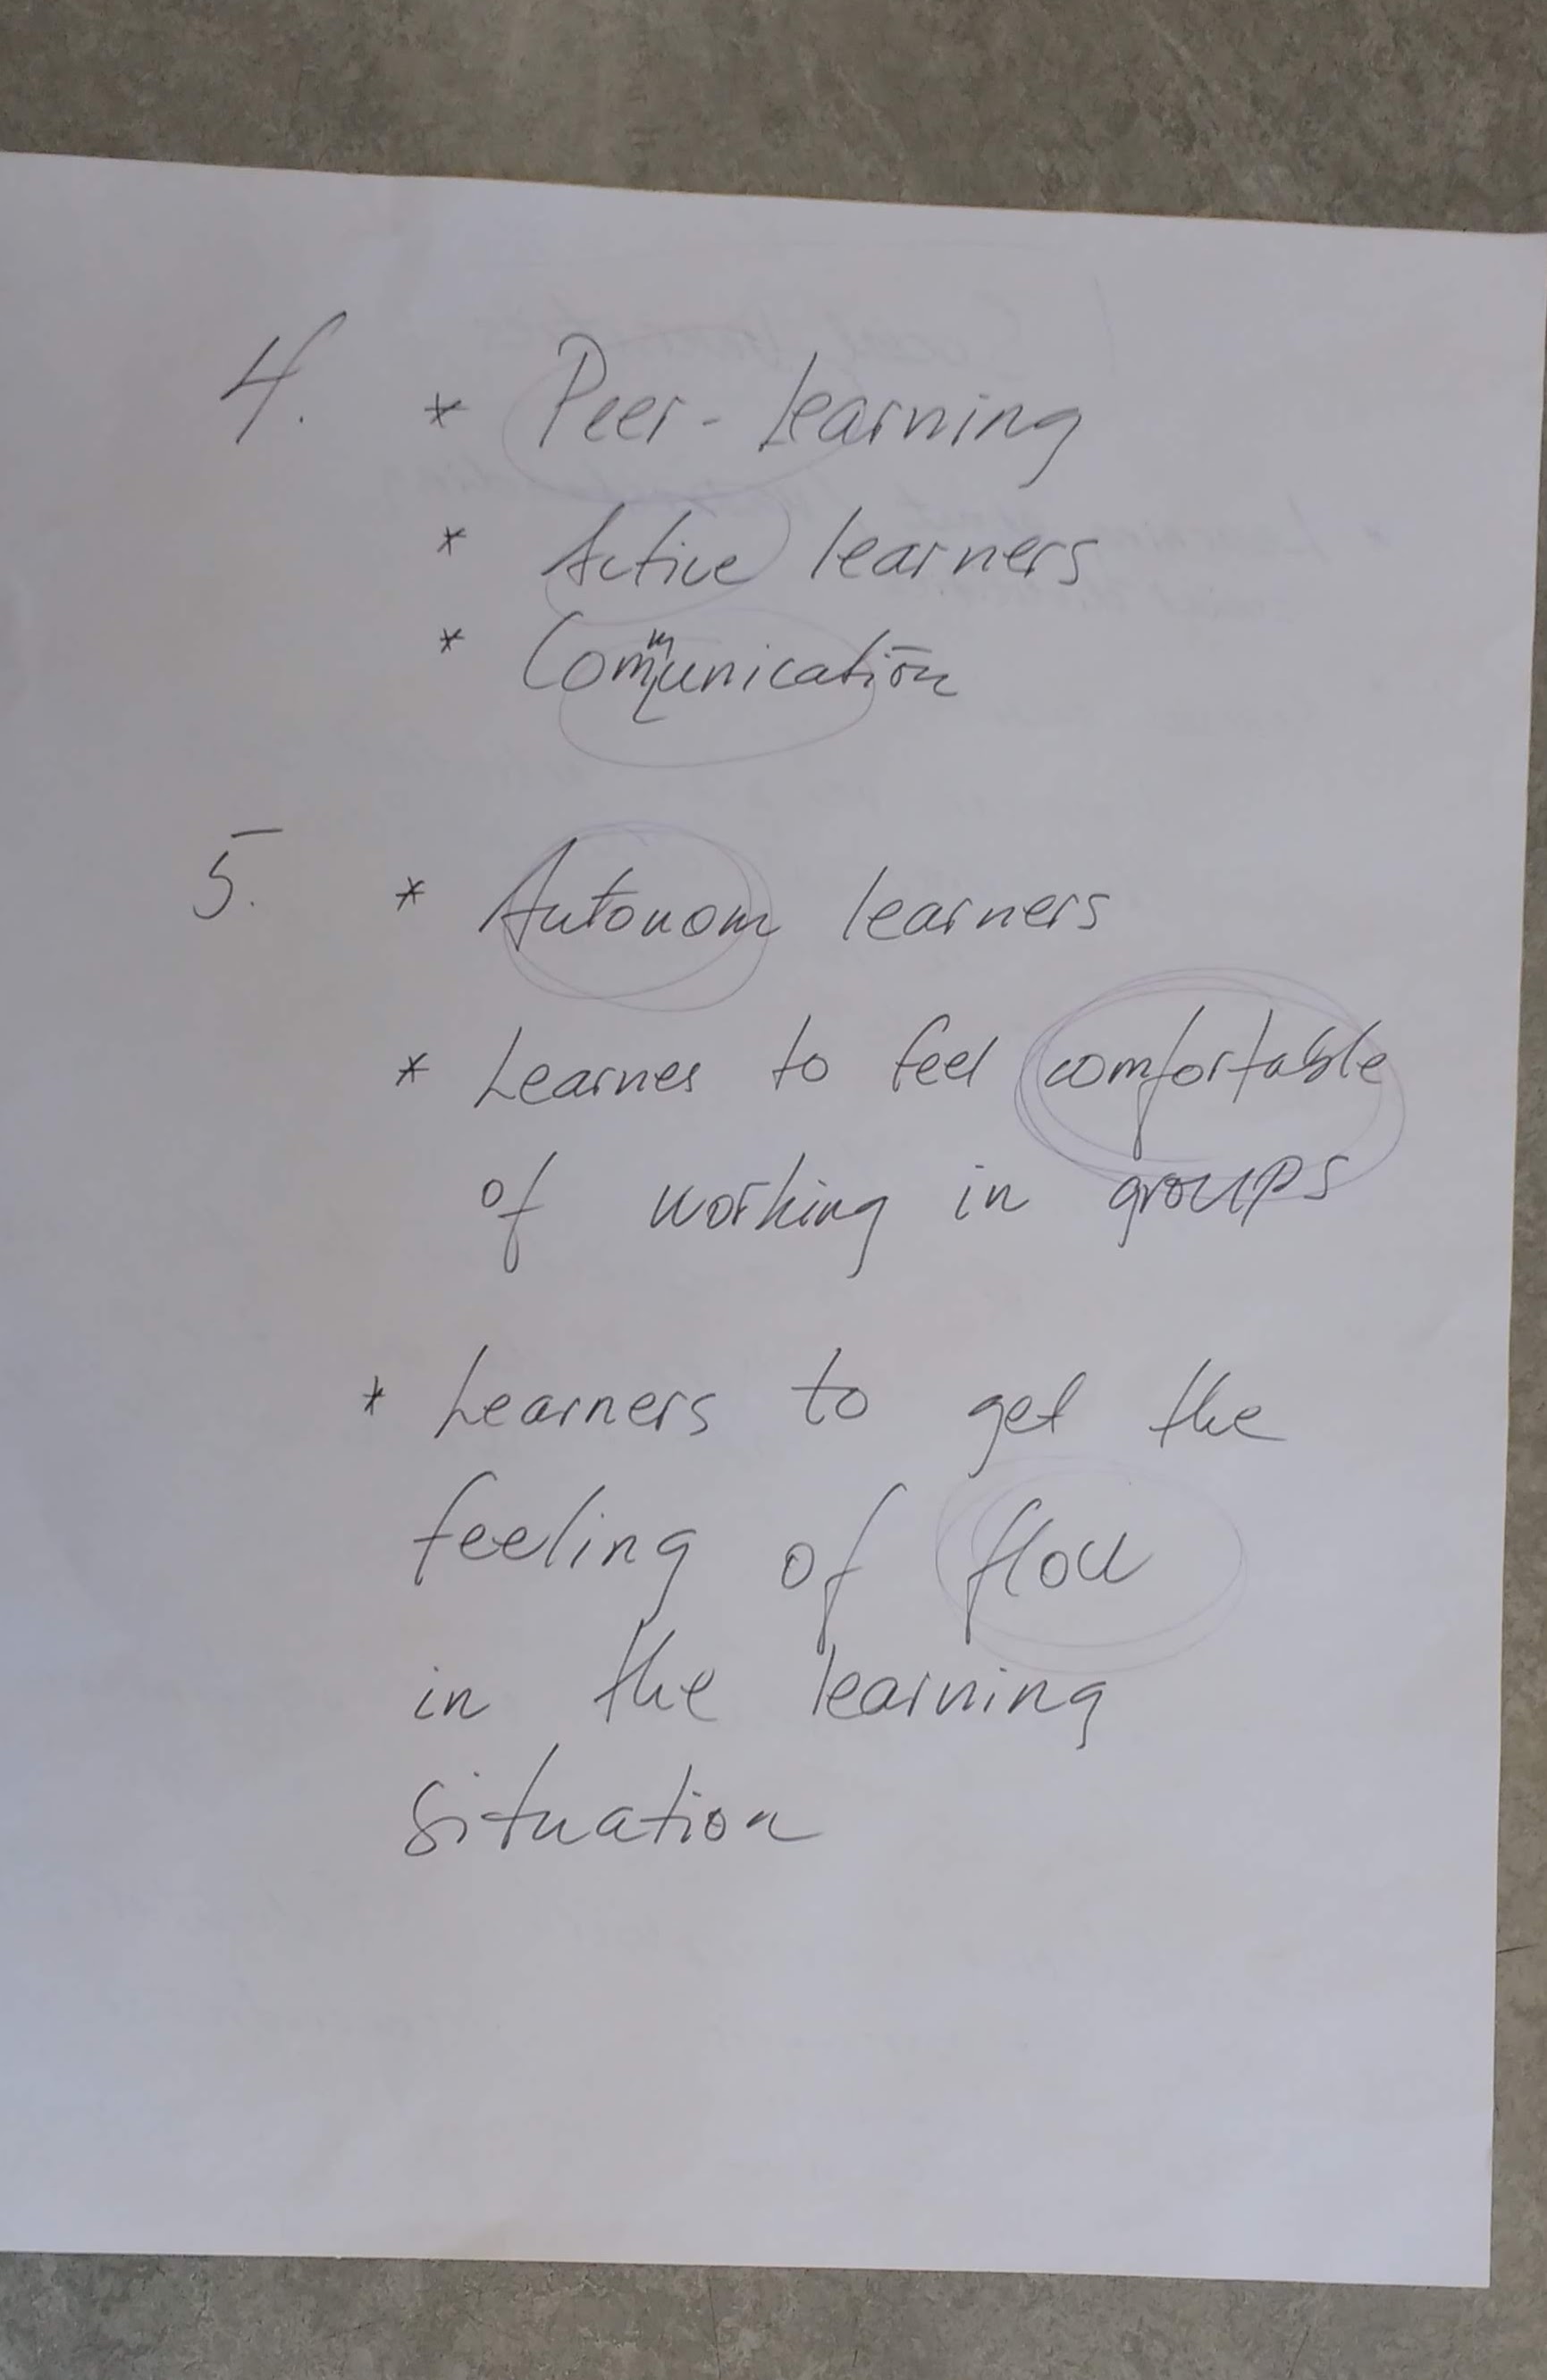 4. * Peer-learning
* Active learners
* Communication
5. * Autonom learners
* Learnes to feel comfortable
of working in groups
* Learners to get the
feeling of flow
in the learning
situation